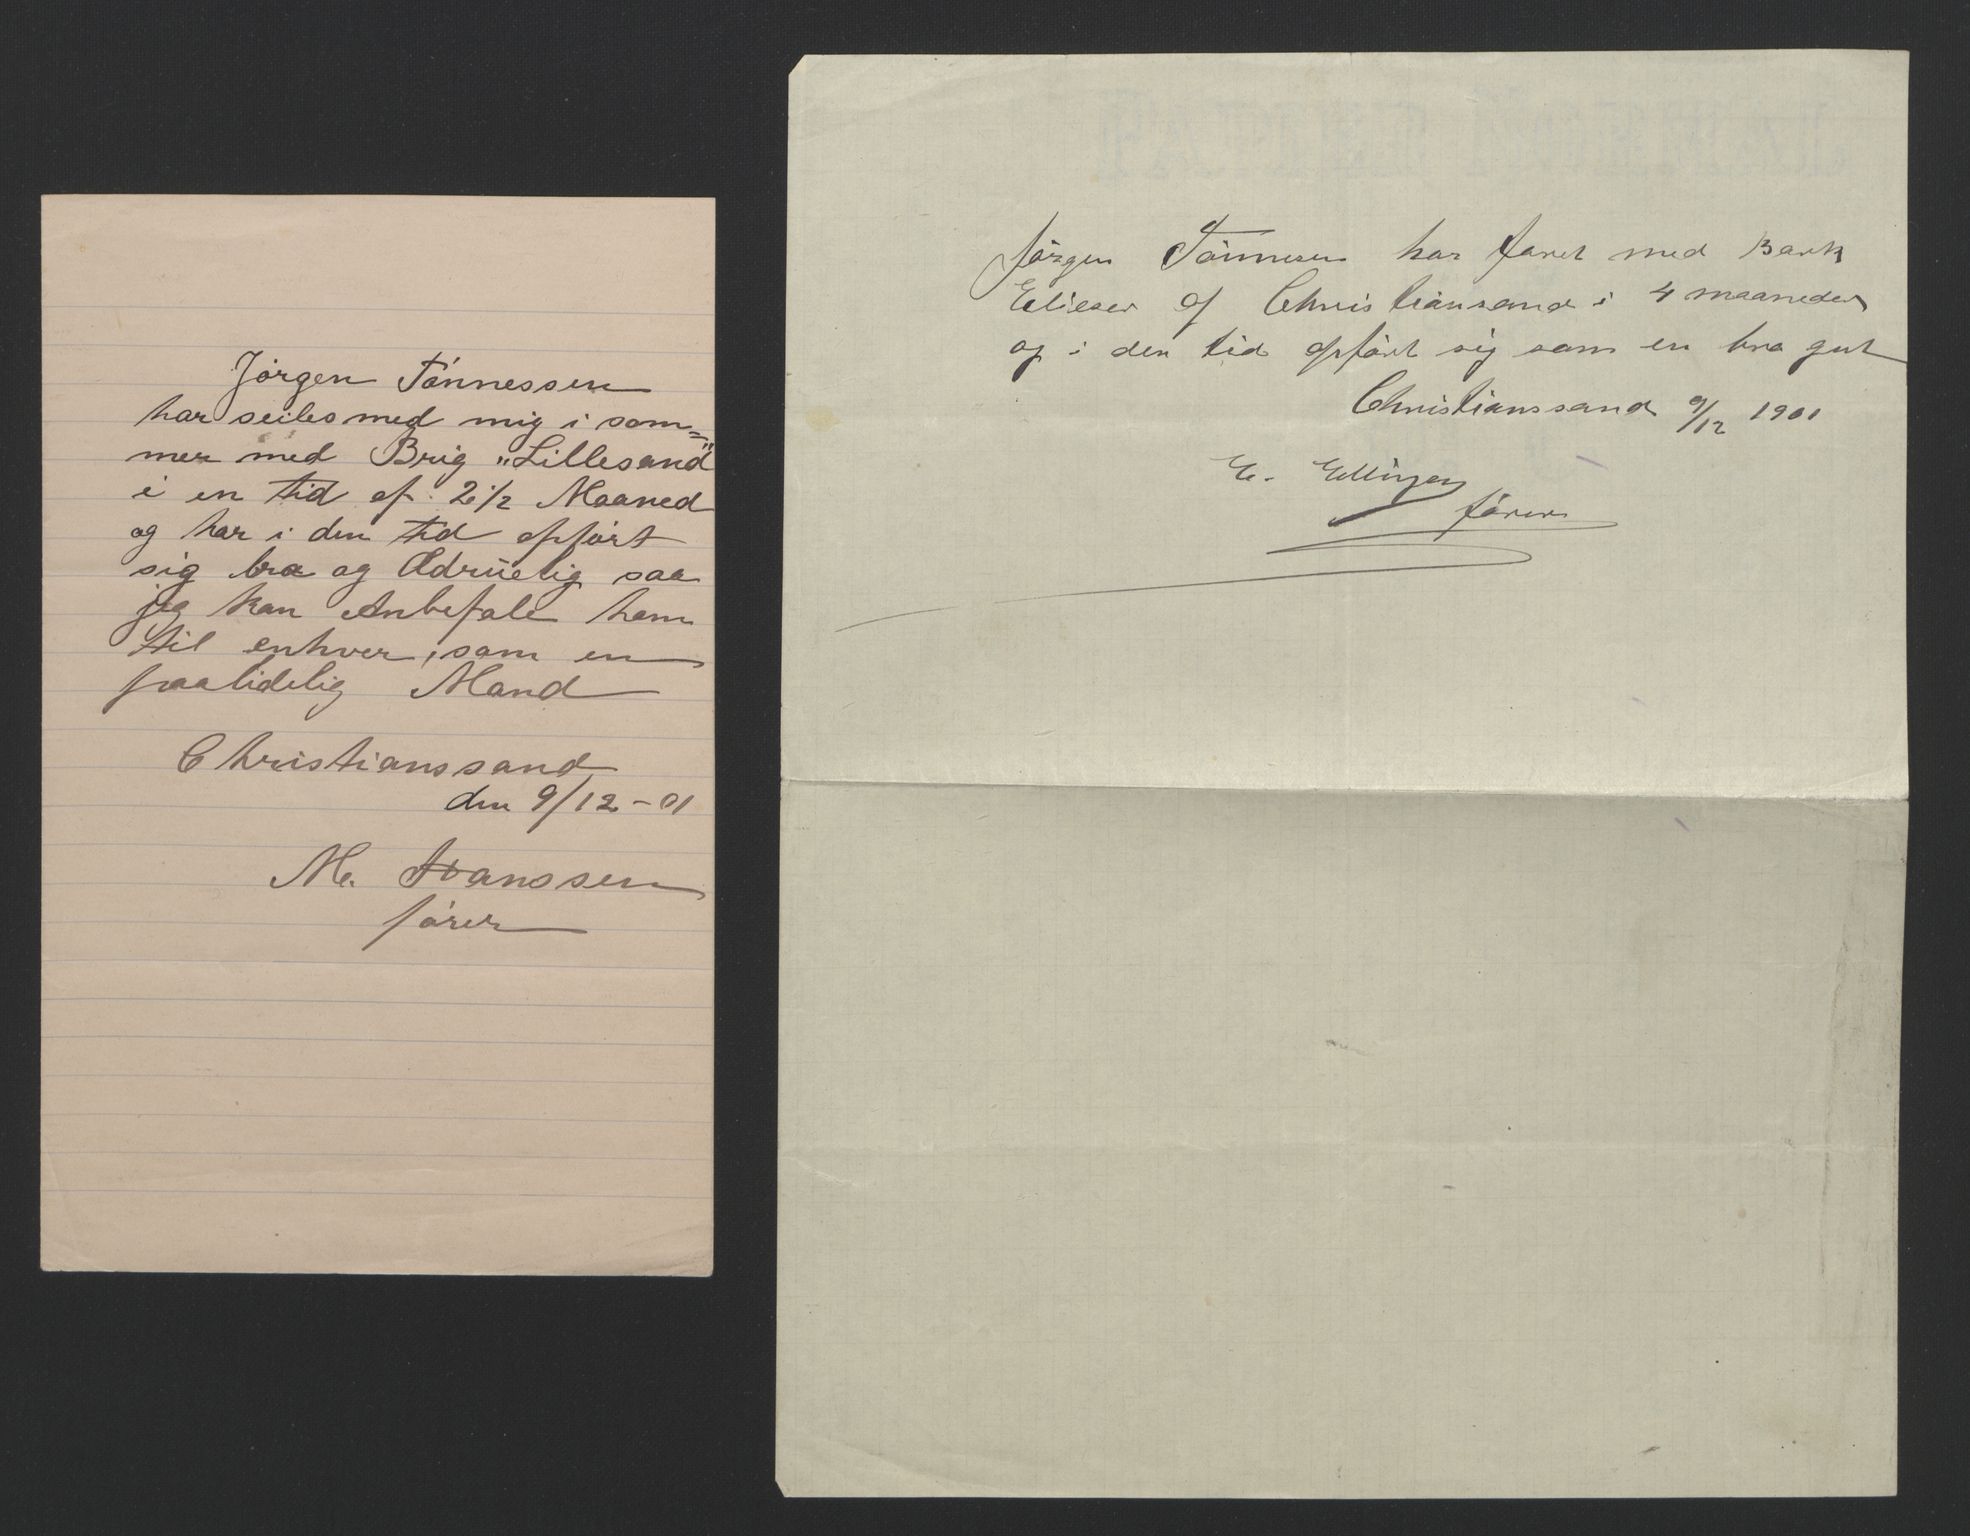 Jørgen Tønnessen
har seiles med mig i som=
mer med Brig "Lillesand"
i en tid af 2 1/2 Maaned
og har i den tid opført
sig bra og Ædruelig saa
jeg kan Anbefale ham
til enhver, som en
paalidelig Mand
Christianssand
den 9/12 - 01
M. Hanssen
fører
Jørgen Tønnesen har faret med Bark
Elieser af Christiansand i 4 maaneder
og i den tid opført sig som en bra gut
Christianssand 9/12 1901
E. Ellingsen
fører